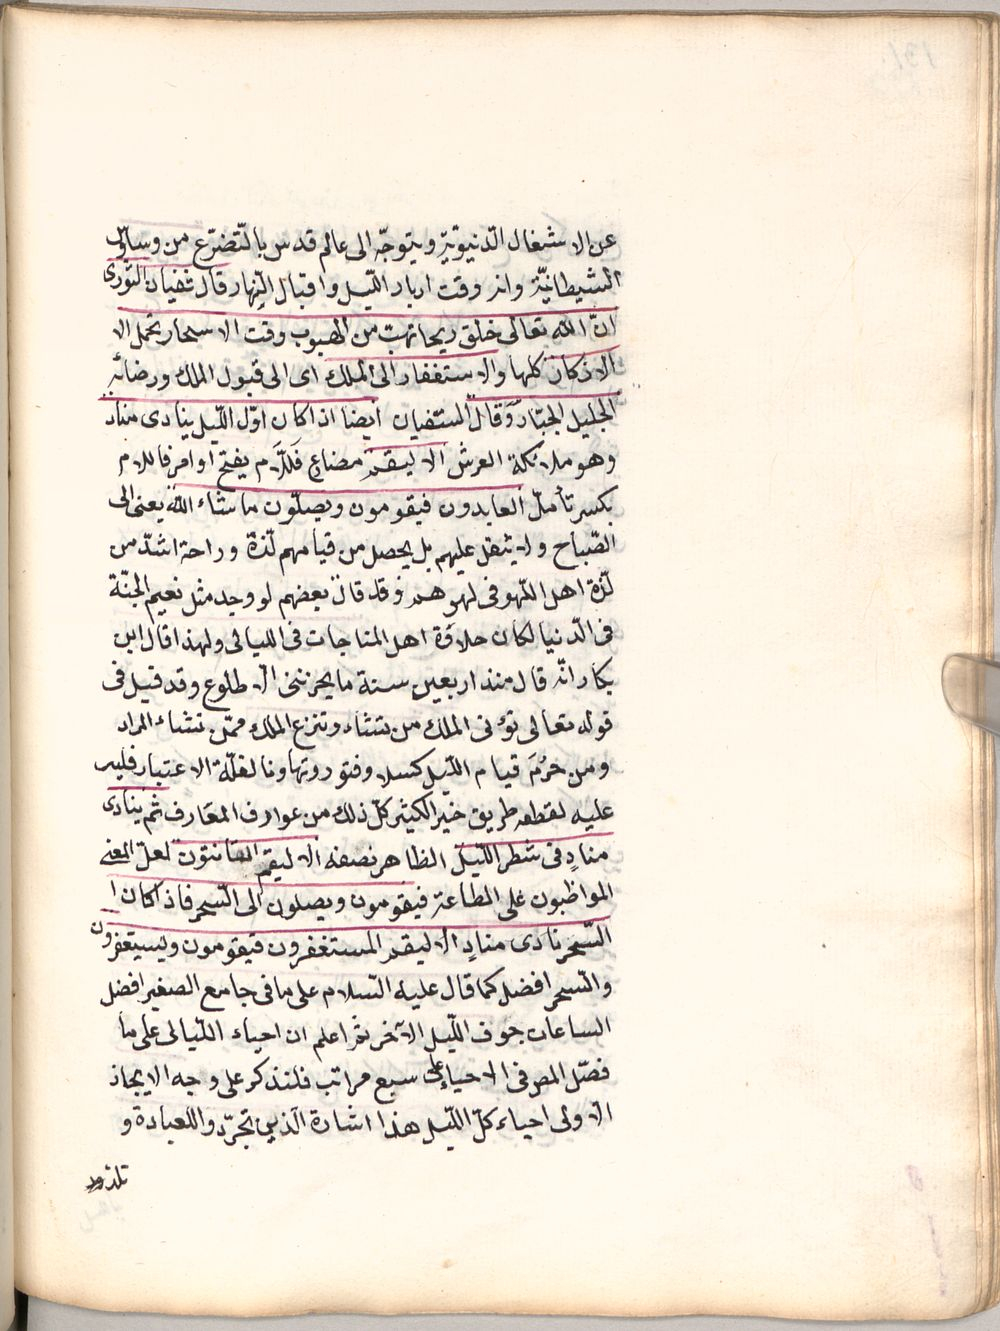 عن الاشتغال الدنيويّة ويتوجّه الى عالم قدس بالتّضرّع من وساوس
الشيطانيّة وانه وقت ادبار الليل واقبال النّهار قال سفيان الثّورى
انّ الله تعالى خلق ريحا تهبّ من الهبوب وقت الاسحار تحمل الا
الاذكار كلها والاستغفار الى الملك اى الى قبول الملك ورضائه
الجليل الجبّار وقال السفيان ايضا اذا كان اوّل الليل ينادى مناد
وهو ملائكة العرش الا ليقم مضارع فاللام يفتح او امر فاللام
بكسر تأمل العابدون فيقومون ويصلّون ما شاء الله يعنى الى
الصّباح ولا يثقل عليهم بل يحصل من قيامهم لذّة وراحة اشدّ من
لذّة اهل اللهو فى لهوهم وقد قال بعضهم لو وجد مثل نعيم الجنّة
فى الدّنيا لكان حلاوة اهل المناجات فى الليالى ولهذا قال ابن
بكار انّه قال منذ اربعين سنة ما يحزننى الا طلوع وقد قيل فى
قوله تعالى تؤتى الملك من تشاء وتنزع الملك ممّن تشاء المراد
ومن حُرِمَ قيام الليل كسلا وفتورا وتهاونا لقلّة الاعتبار فليبك
عليه لقطعه طريق خير الكثير كلّ ذلك من عوارف المعارف ثم ينادى
منادٍ فى شطر الليل الظاهر نصفه الا ليقم القانتون لعلّ المعنه
المواظبون على الطاعة فيقومون ويصلون الى السّحر فاذا كان ا
السّحر نادى منادٍ الا ليقم المستغفرون فيقومون وليستغفرون
والسّحر افضل كما قال عليه السّلام على ما فى جامع الصغير افضل
الساعات جوف الليل الآخر ثم اعلم ان احياء الليالى على ما
فصّل المص فى الاحياء على سبع مراتب فلنذكر على وجه الايجاز
الاولى احياء كلّ الليل هذا اشارة الذين تجرّدوا للعبادة و
تلذذوا